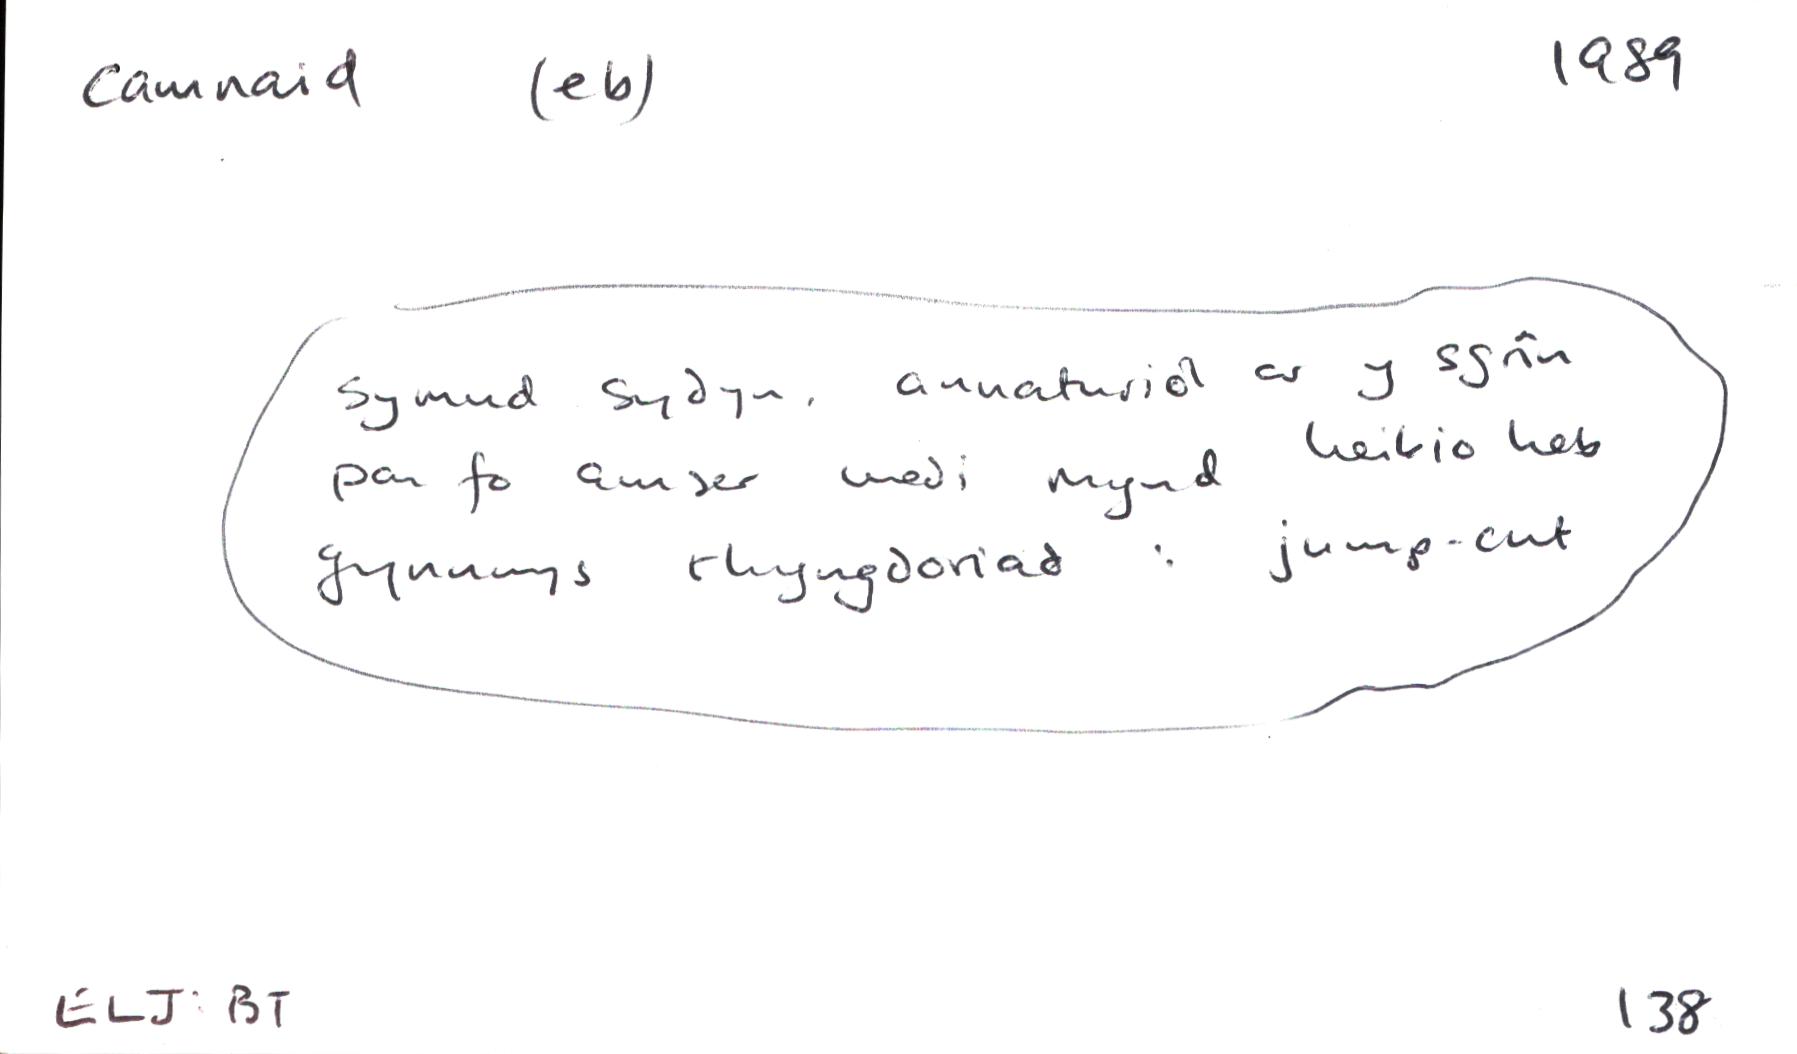 Camnaid (eb) 1989
Symud sydyn, annaturiol ar y sgrîn
pan fo amser wedi mynd heibio heb
gynnwys rhyngdoriad : jump-cut
ELJ: BT 138